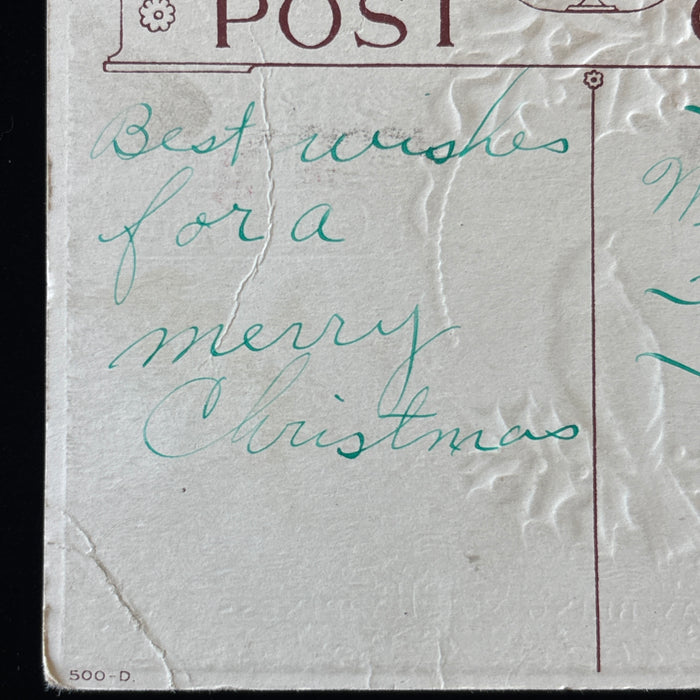 POST
Best wishes
for a
merry
Christmas
500-D.